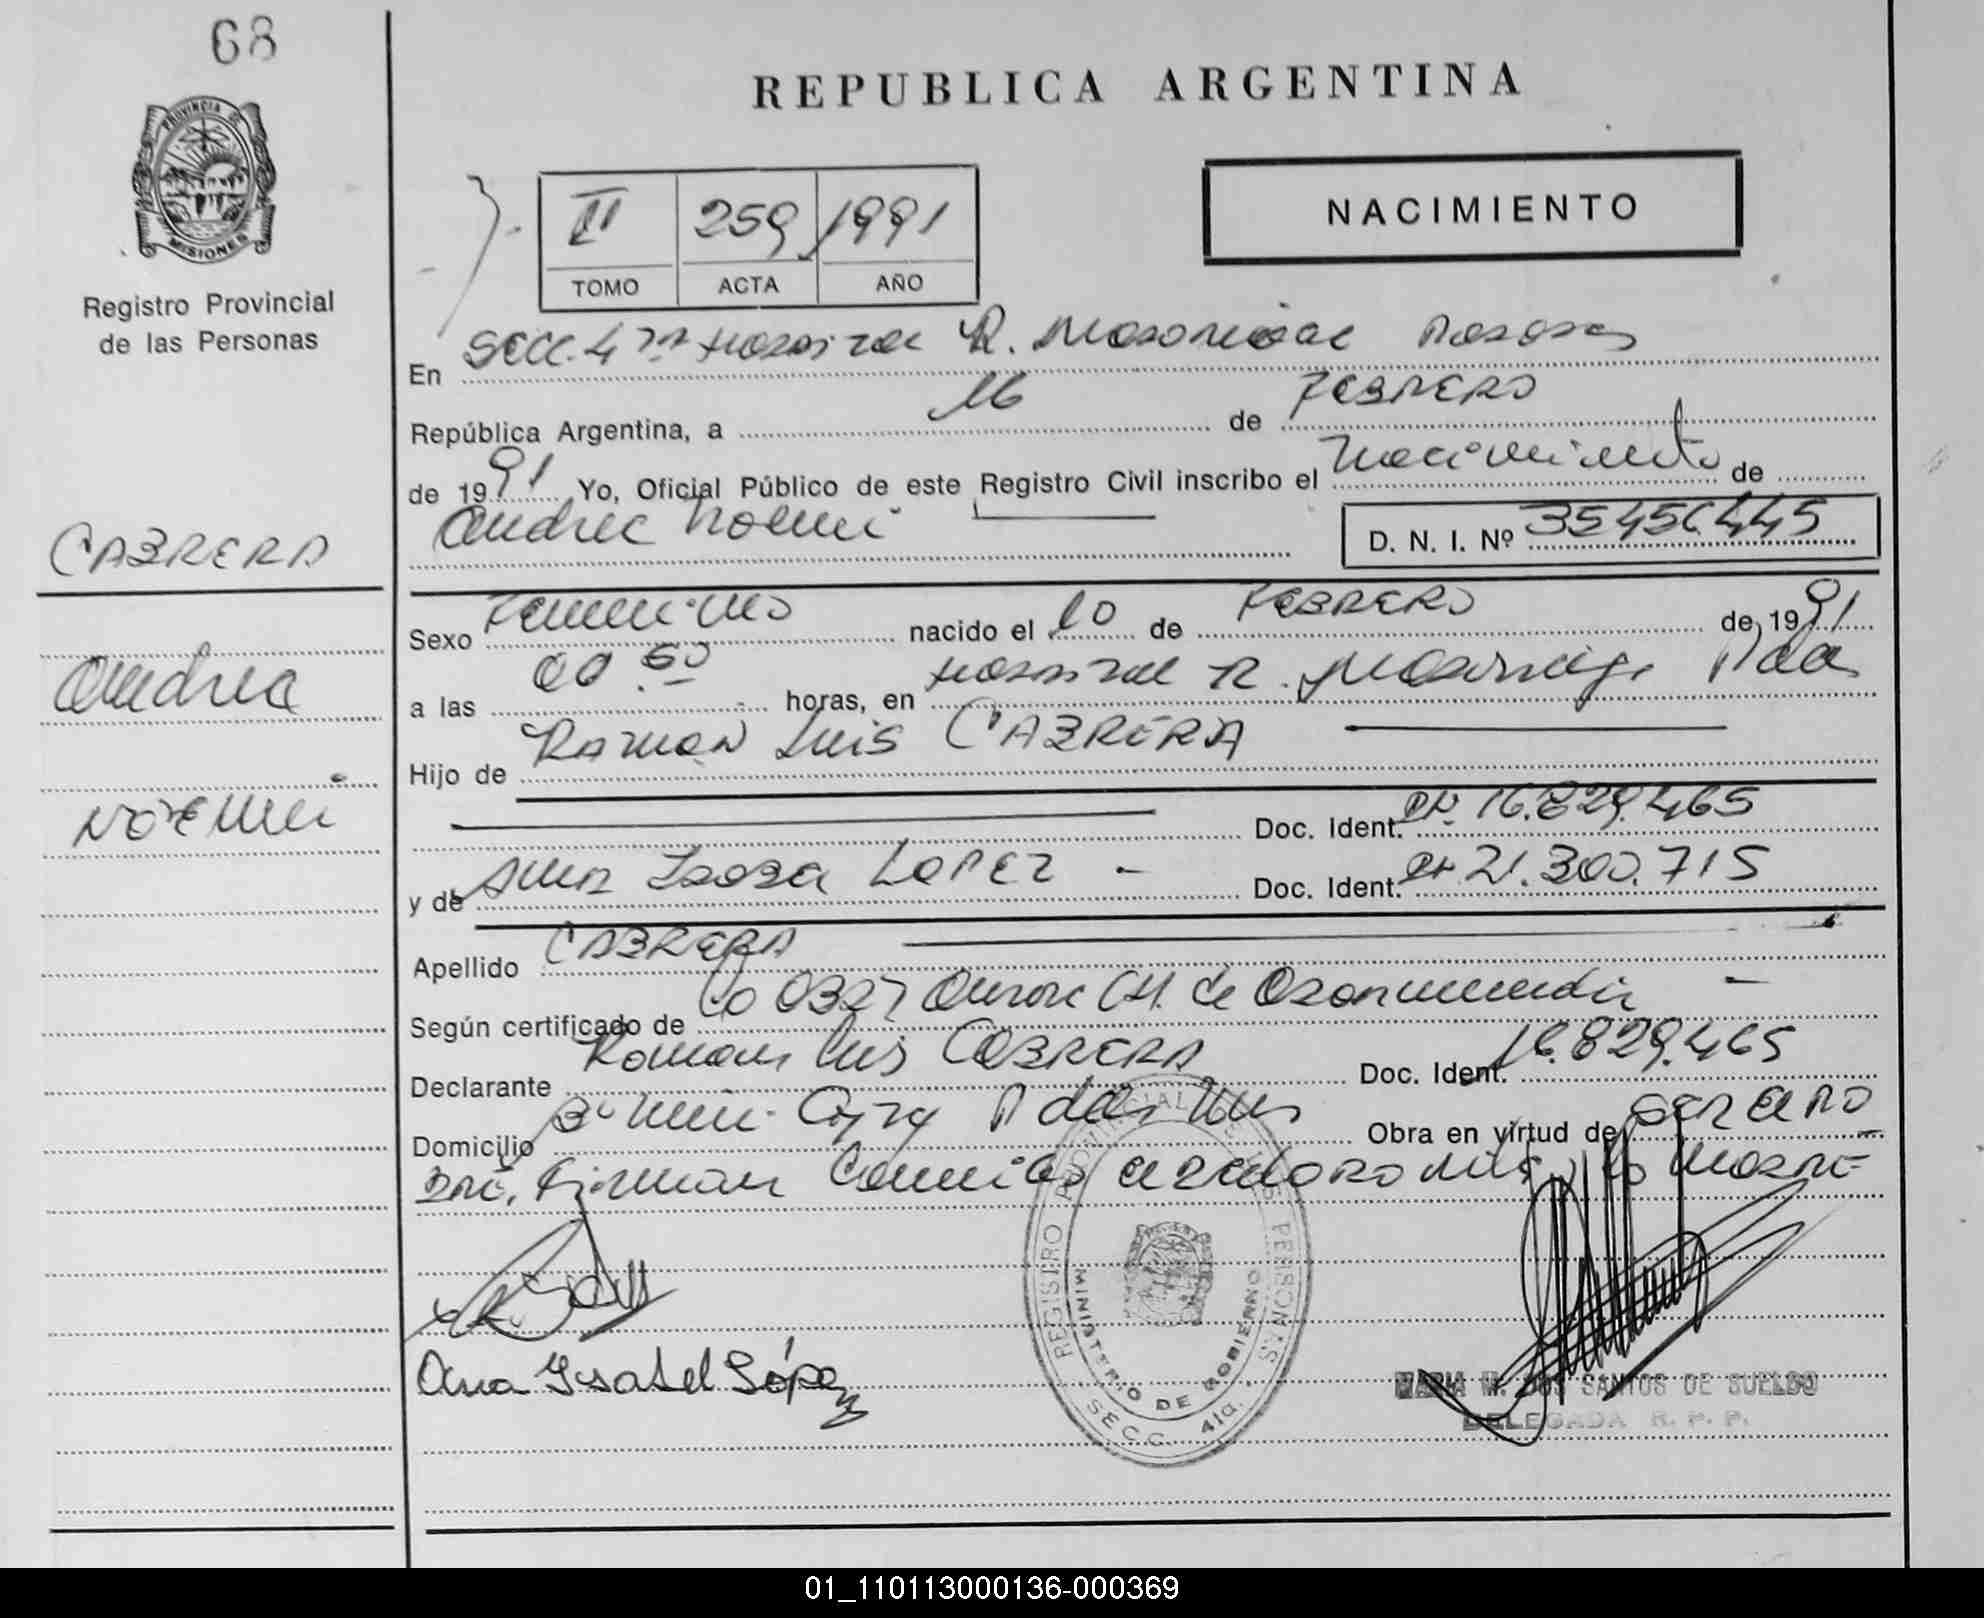 68
PROVINCIA DE
MISIONES
Registro Provincial
de las Personas
REPUBLICA ARGENTINA
II 259 1991
TOMO ACTA AÑO
NACIMIENTO
En Secc. 4ta Hospital R. Madariaga Posadas
República Argentina, a 16 de FEBRERO
de 1991 Yo, Oficial Público de este Registro Civil inscribo el Nacimiento de
Andrea Noemi D. N. I. Nº 35456445
CABRERA
Andrea
NOEMI
Sexo Femenino nacido el 10 de FEBRERO de 1991
a las 00.50 horas, en Hospital R. Madariaga Pdas
Hijo de Ramon Luis CABRERA
Doc. Ident. DN. 16.829.465
y de Ana Isabel LOPEZ - Doc. Ident. 21.300.715
Apellido CABRERA
Según certificado de 0327 CH. de
Declarante Ramon Luis CABRERA Doc. Ident. 16.829.465
Domicilio Pdas Mnes Obra en virtud de
Firman la Madre
Ana Ysabel López
REGISTRO PROVINCIAL DE LAS PERSONAS
MINISTERIO DE GOBIERNO
SECC. 4ta.
MARIA M. DOS SANTOS DE SUELDO
DELEGADA R. P. P.
01_110113000136-000369